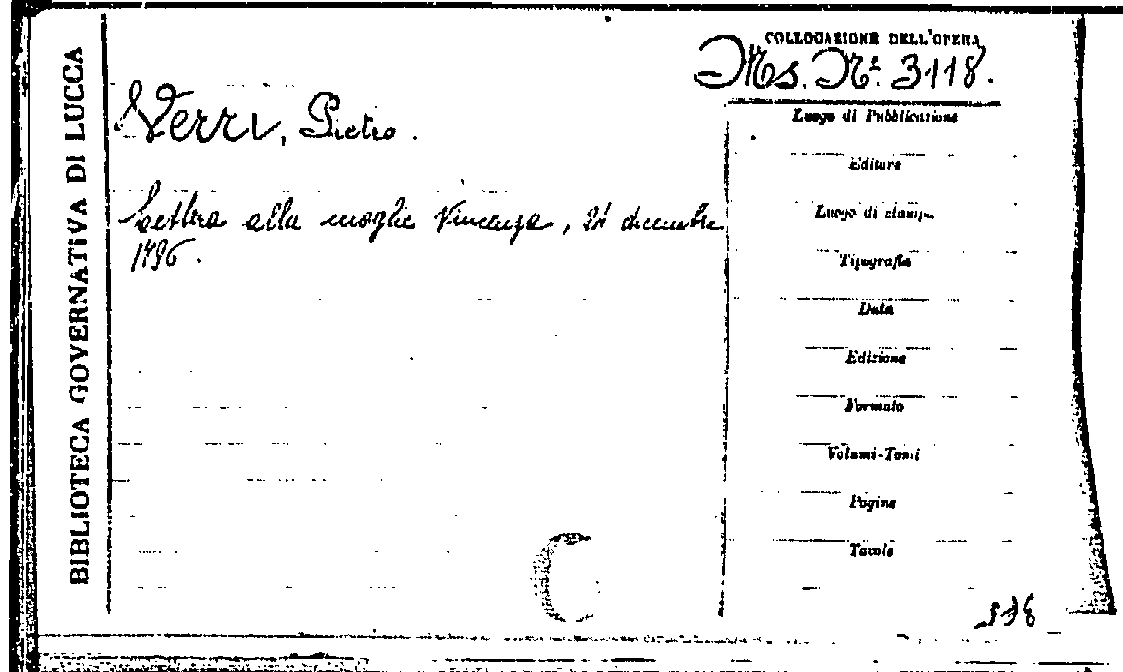 BIBLIOTECA GOVERNATIVA DI LUCCA
COLLOCAZIONE DELL'OPERA
Ms. Nº. 3118.
Verri, Pietro.
Lettera alla moglie Vincenza, 24 dicembre
1796.
Luogo di Pubblicazione
Editore
Luogo di stampa
Tipografia
Data
Edizione
Formato
Volumi-Tomi
Pagine
Tavole